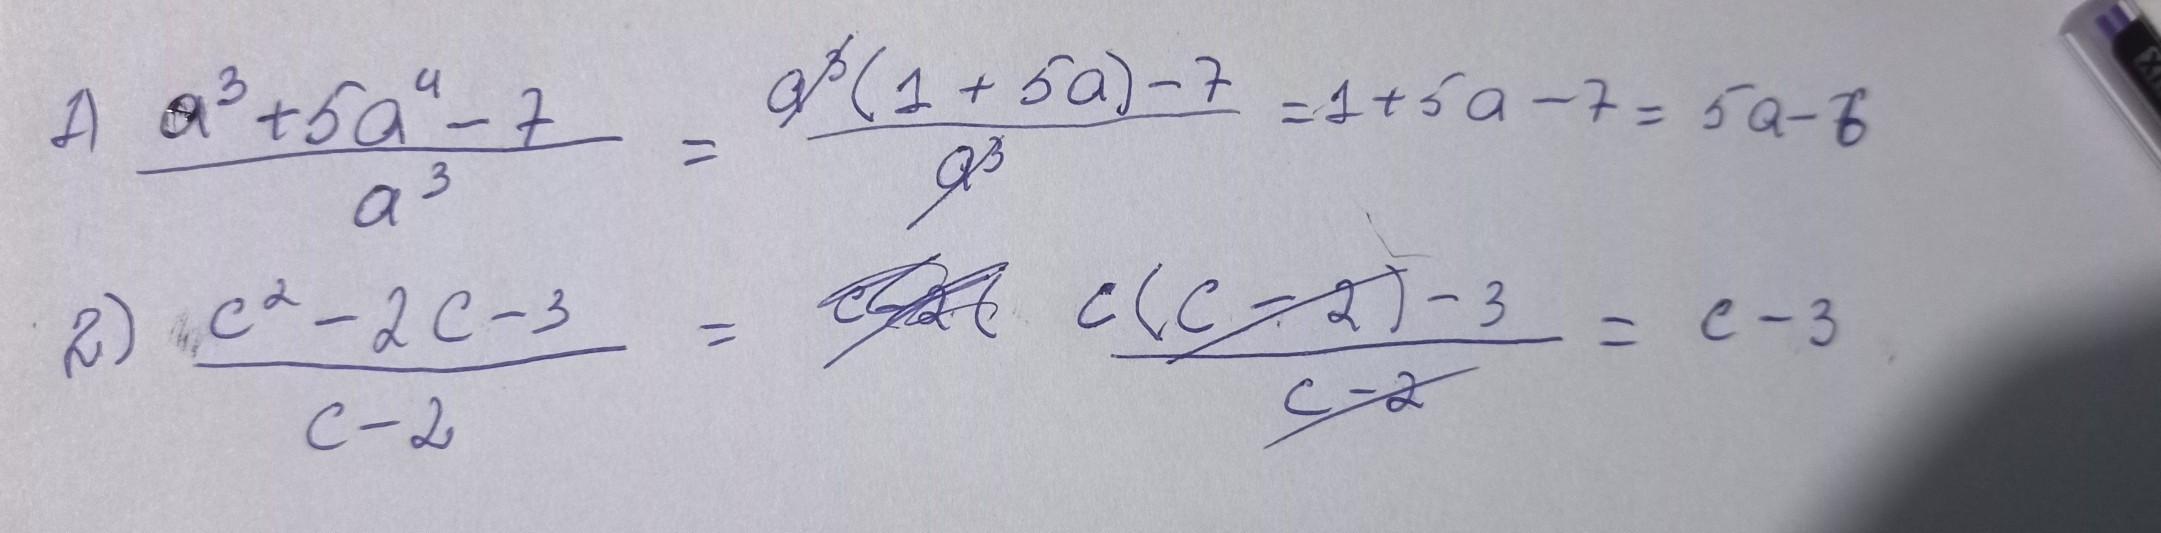 1) (a³+5a⁴-7)/a³ = (a³(1+5a)-7)/a³ = 1+5a-7 = 5a-6
2) (c²-2c-3)/(c-2) = (c(c-2)-3)/(c-2) = c-3